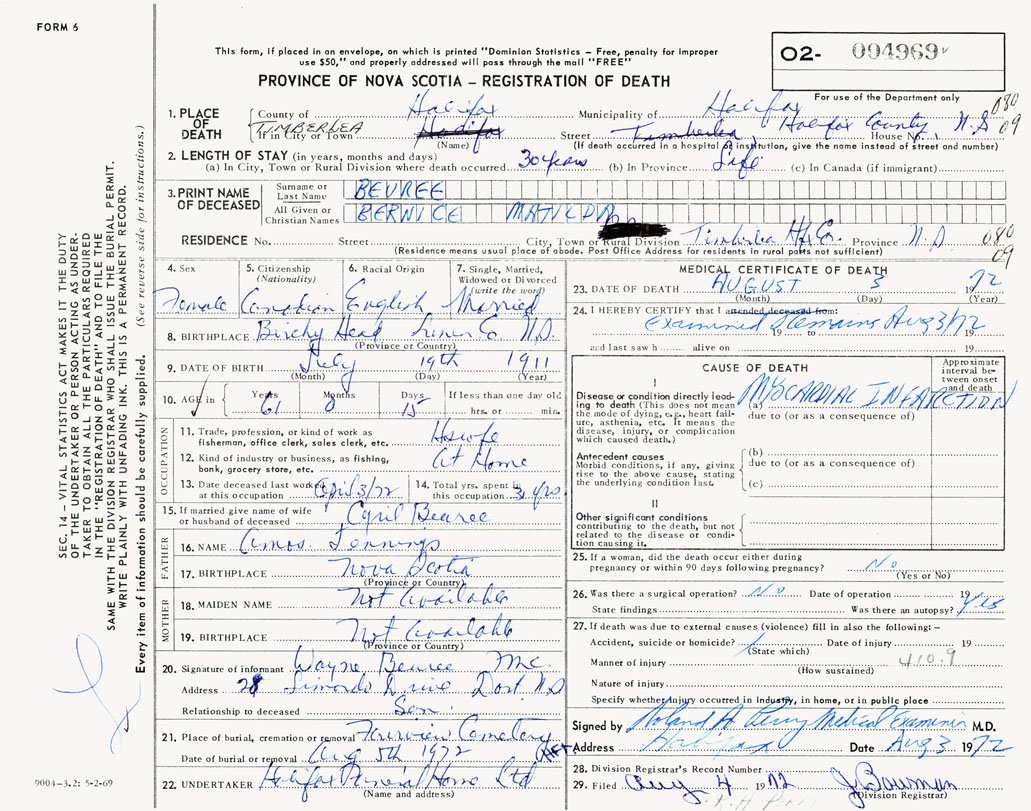 FORM 6
This form, if placed in an envelope, on which is printed "Dominion Statistics – Free, penalty for improper
use $50," and properly addressed will pass through the mail "FREE"
PROVINCE OF NOVA SCOTIA – REGISTRATION OF DEATH
O2- 004969
For use of the Department only
1. PLACE OF DEATH County of Halifax Municipality of Halifax 080
TIMBERLEA If in City or Town Halifax (Name) Street Timberlea, Halifax County, House No. N.S 09
(If death occurred in a hospital or institution, give the name instead of street and number)
2. LENGTH OF STAY (in years, months and days)
(a) In City, Town or Rural Division where death occurred 30 years (b) In Province Life (c) In Canada (if immigrant)
3. PRINT NAME OF DECEASED Surname or Last Name BEVREE
All Given or Christian Names BERNICE MATILDA
RESIDENCE No. Street City, Town or Rural Division Timberlea Hx Co. Province N.S 080
(Residence means usual place of abode. Post Office Address for residents in rural parts not sufficient) 09
4. Sex 5. Citizenship (Nationality) 6. Racial Origin 7. Single, Married, Widowed or Divorced (write the word)
Female Canadian English Married
8. BIRTHPLACE Birchy Head Lunen Co N.S.
(Province or Country)
9. DATE OF BIRTH July 19th 1911
(Month) (Day) (Year)
10. AGE in Years 61 Months 0 Days 15 If less than one day old
hrs. or min.
OCCUPATION
11. Trade, profession, or kind of work as fisherman, office clerk, sales clerk, etc. Hswfe
12. Kind of industry or business, as fishing, bank, grocery store, etc. At Home
13. Date deceased last worked at this occupation April 3/72 14. Total yrs. spent in this occupation 31 yrs.
15. If married give name of wife or husband of deceased Cyril Bearee
FATHER
16. NAME Amos Jennings
17. BIRTHPLACE Nova Scotia
(Province or Country)
MOTHER
18. MAIDEN NAME Not Available
19. BIRTHPLACE Not Available
(Province or Country)
20. Signature of informant Wayne Bearee
Address 28 Simonds Drive Dart N.S
Relationship to deceased Son
21. Place of burial, cremation or removal Fairview Cemetery
Date of burial or removal Aug 5th 1972
22. UNDERTAKER Halifax Funeral Home Ltd
(Name and address)
MEDICAL CERTIFICATE OF DEATH
23. DATE OF DEATH AUGUST 3 1972
(Month) (Day) (Year)
24. I HEREBY CERTIFY that I attended deceased from:
Examined Remains Aug 3/72
19 19
and last saw h alive on 19
CAUSE OF DEATH
Approximate interval between onset and death
I
Disease or condition directly leading to death (This does not mean the mode of dying, e.g., heart failure, asthenia, etc. It means the disease, injury, or complication which caused death.)
(a) MYOCARDIAL INFARCTION
due to (or as a consequence of)
Antecedent causes
Morbid conditions, if any, giving rise to the above cause, stating the underlying condition last.
(b)
due to (or as a consequence of)
(c)
II
Other significant conditions
contributing to the death, but not related to the disease or condition causing it.
25. If a woman, did the death occur either during
pregnancy or within 90 days following pregnancy? No
(Yes or No)
26. Was there a surgical operation? No Date of operation 19
State findings Was there an autopsy? Yes
27. If death was due to external causes (violence) fill in also the following:–
Accident, suicide or homicide? Date of injury 19
(State which)
Manner of injury 410.9
(How sustained)
Nature of injury
Specify whether injury occurred in industry, in home, or in public place
Signed by Roland A Perry Medical Examiner M.D.
Address Halifax Date Aug 3 1972
28. Division Registrar's Record Number
29. Filed Aug 4 1972 J. Bowman
(Division Registrar)
SEC. 14 – VITAL STATISTICS ACT MAKES IT THE DUTY
OF THE UNDERTAKER OR PERSON ACTING AS UNDER-
TAKER TO OBTAIN ALL THE PARTICULARS REQUIRED
IN THE "REGISTRATION OF DEATH" AND TO FILE THE
SAME WITH THE DIVISION REGISTRAR WHO SHALL ISSUE THE BURIAL PERMIT.
WRITE PLAINLY WITH UNFADING INK. THIS IS A PERMANENT RECORD.
Every item of information should be carefully supplied. (See reverse side for instructions.)
9004-3.2: 5-2-69